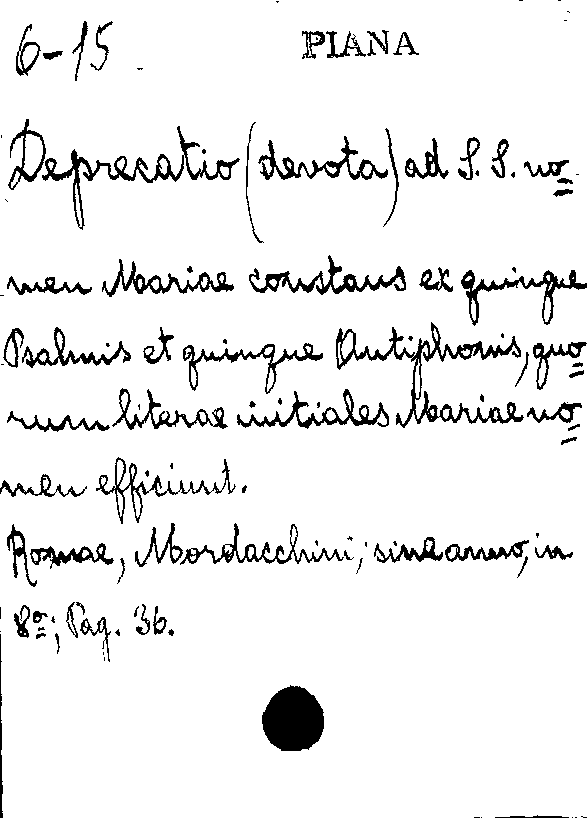 6-15 PIANA
Deprecatio (devota) ad S. S. no=
men Mariae constans ex quinque
Psalmis et quinque Antiphonis, quo=
rum literae initiales Mariae no=
men efficiunt.
Romae, Mordacchini; sine anno, in
8º; Pag. 36.